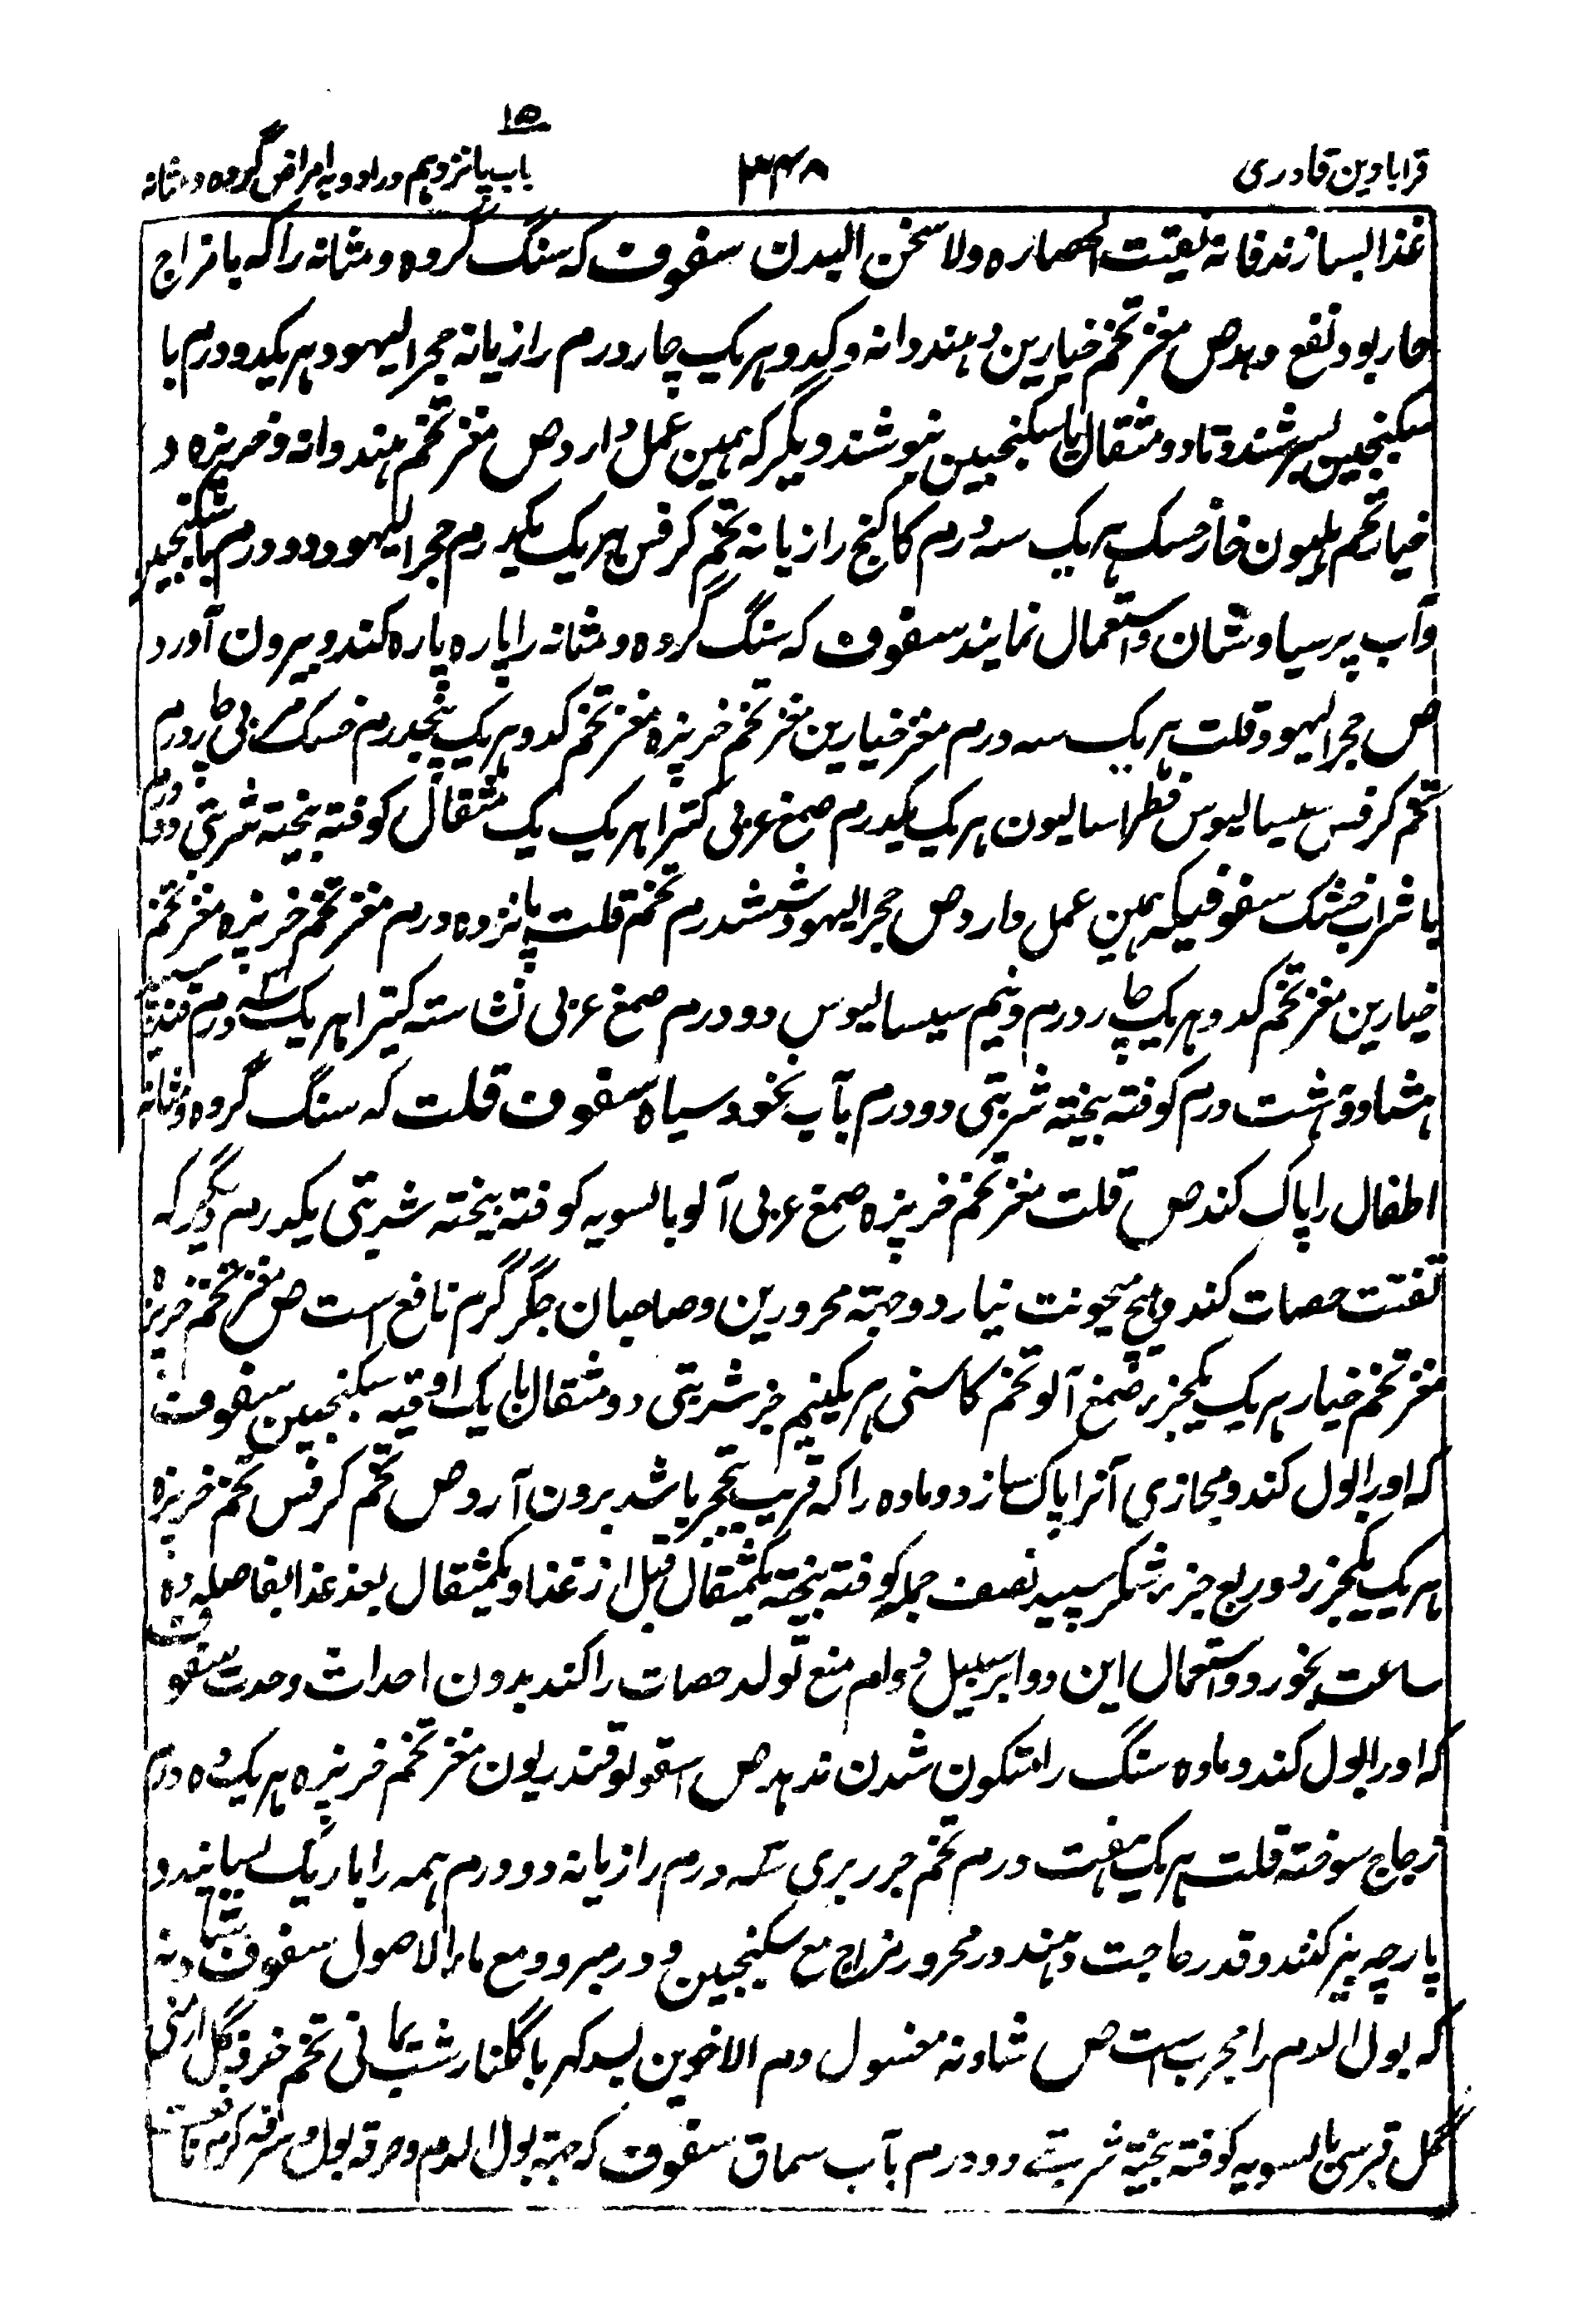 ۱۵
قرابادین قادری ۳۴۸ باب پانزدہم در ادویہ امراض گردہ و مثانہ
غذا بسازند فانہ تفیتت الحصارہ ولا سخن البدن سفوف کہ سنگ گردہ و مثانہ را کہ با مزاج
حار بود نفع دہد ص مغز تخم خیارین و ہندوانہ و کدو ہریک چار درم رازیانہ حجر الیہود ہریکدو درم با
سکنجبین بسرشند و تا دو مثقال با سکنجبین بنوشند دیگر کہ ہمین عمل دارد ص مغز تخم ہندوانہ و خربزہ و
خیار تخم ہلیون خارخسک ہریک سہ درم کاکنج رازیانہ تخم کرفس ہریک یکدرم حجر الیہود دو درم با سکنجبین
و آب پرسیاوشان استعمال نمایند سفوف کہ سنگ گردہ و مثانہ را پارہ پارہ کند و بیرون آورد
ص حجر الیہود قلت ہریک سہ درم مغز خیارین مغز تخم خربزہ مغز تخم کدو ہریک پنجدرم خسک مربی چار درم
تخم کرفس سیسالیوس فطراسالیون ہریک یکدرم صمغ عربی کتیرا ہریک یک مثقال کوفتہ بیختہ شربتی دو درم
با شراب خشک سفوفیکہ ہمین عمل دارد ص حجر الیہود ششدرم تخم قلت پانزدہ درم مغز تخم خربزہ مغز تخم
خیارین مغز تخم کدو ہریک چار درم و نیم سیسالیوس دو درم صمغ عربی نشاستہ کتیرا ہریک سہ درم قند
ہشتاد و ہشت درم کوفتہ بیختہ شربتی دو درم بآب نخود سیاہ سفوف قلت کہ سنگ گردہ و مثانہ
اطفال را پاک کند ص قلت مغز تخم خربزہ صمغ عربی آلو بالسویہ کوفتہ بیختہ شربتی یکدرم دیگر کہ
تفتت حصات کند و ہیچ سخونت نیارد و جہتہ محرورین و صاحبان جگر گرم نافع است ص مغز تخم خربزہ
مغز تخم خیار ہریک یکجزء صمغ آلو تخم کاسنی ہریکنیم جز شربتی دو مثقال با یک اوقیہ سکنجبین سفوف
کہ ادرار بول کند و مجاری آنرا پاک سازد و مادہ را کہ قریب بتحجر باشد برون آرد ص تخم کرفس تخم خربزہ
ہریک یکجزء دو ربع جزء شکر سپید نصف جملہ کوفتہ بیختہ یکمثقال قبل از غذا و یکمثقال بعد غذا بفاصلہ دہ
ساعت بخورد و استعمال این دوا بر سبیل دوام منع تولد حصات را کند بدون احداث وحدت سفوف
کہ ادرار بول کند و مادہ سنگ را متکون شدن ندہد ص اسقولوقندریون مغز تخم خربزہ ہریک دہ درم
زجاج سوختہ قلت ہریک ہفت درم تخم جزر بری سہ درم رازیانہ دو درم ہمہ را باریک بسایند و
پارچہ بیز کنند و قدر حاجت دہند در محرور مزاج مع سکنجبین و در مبرود مع ماء الاصول سفوف شادنہ
کہ بول الدم را مجرب است ص شادنہ مغسول دم الاخوین بسد کہربا گلنار شب یمانی تخم خرفہ گل ارمنی
گل قبرسی بالسویہ کوفتہ بیختہ شربتے دو درم بآب سماق سفوف کہ جہتہ بول الدم و حرقہ بول و سرفہ گرم نافعست